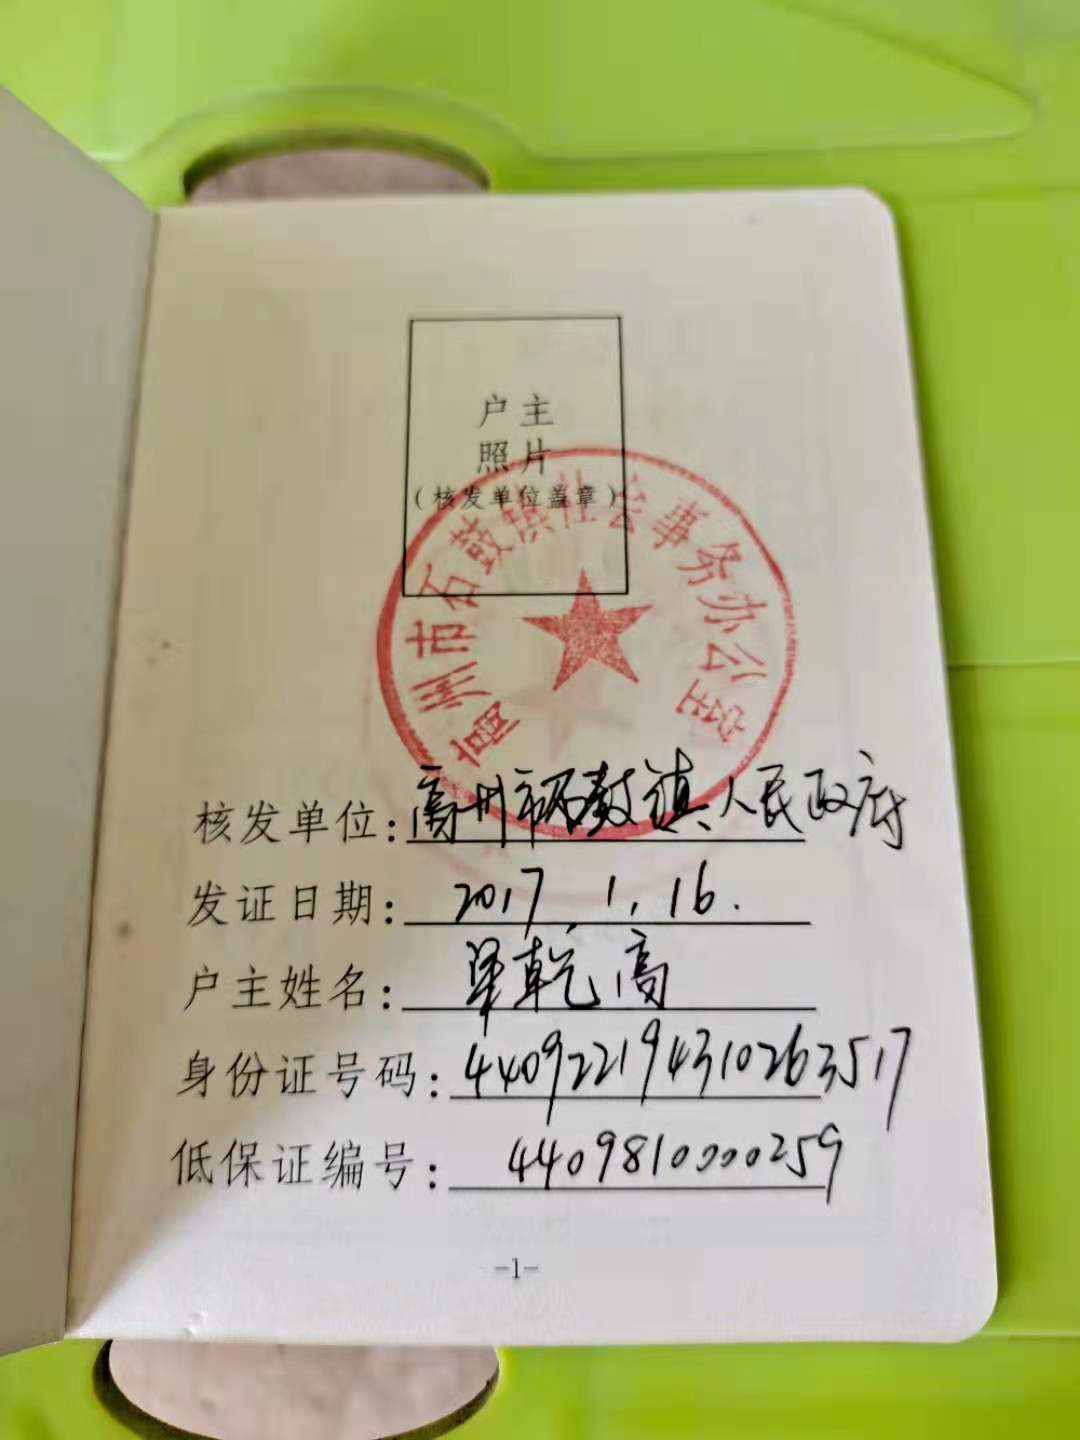 户主
照片
（核发单位盖章）
高州市石鼓镇社会事务办公室
核发单位：高州市石鼓镇人民政府
发证日期：2017.1.16.
户主姓名：梁乾高
身份证号码：440922194310263517
低保证编号：4409810000259
-1-